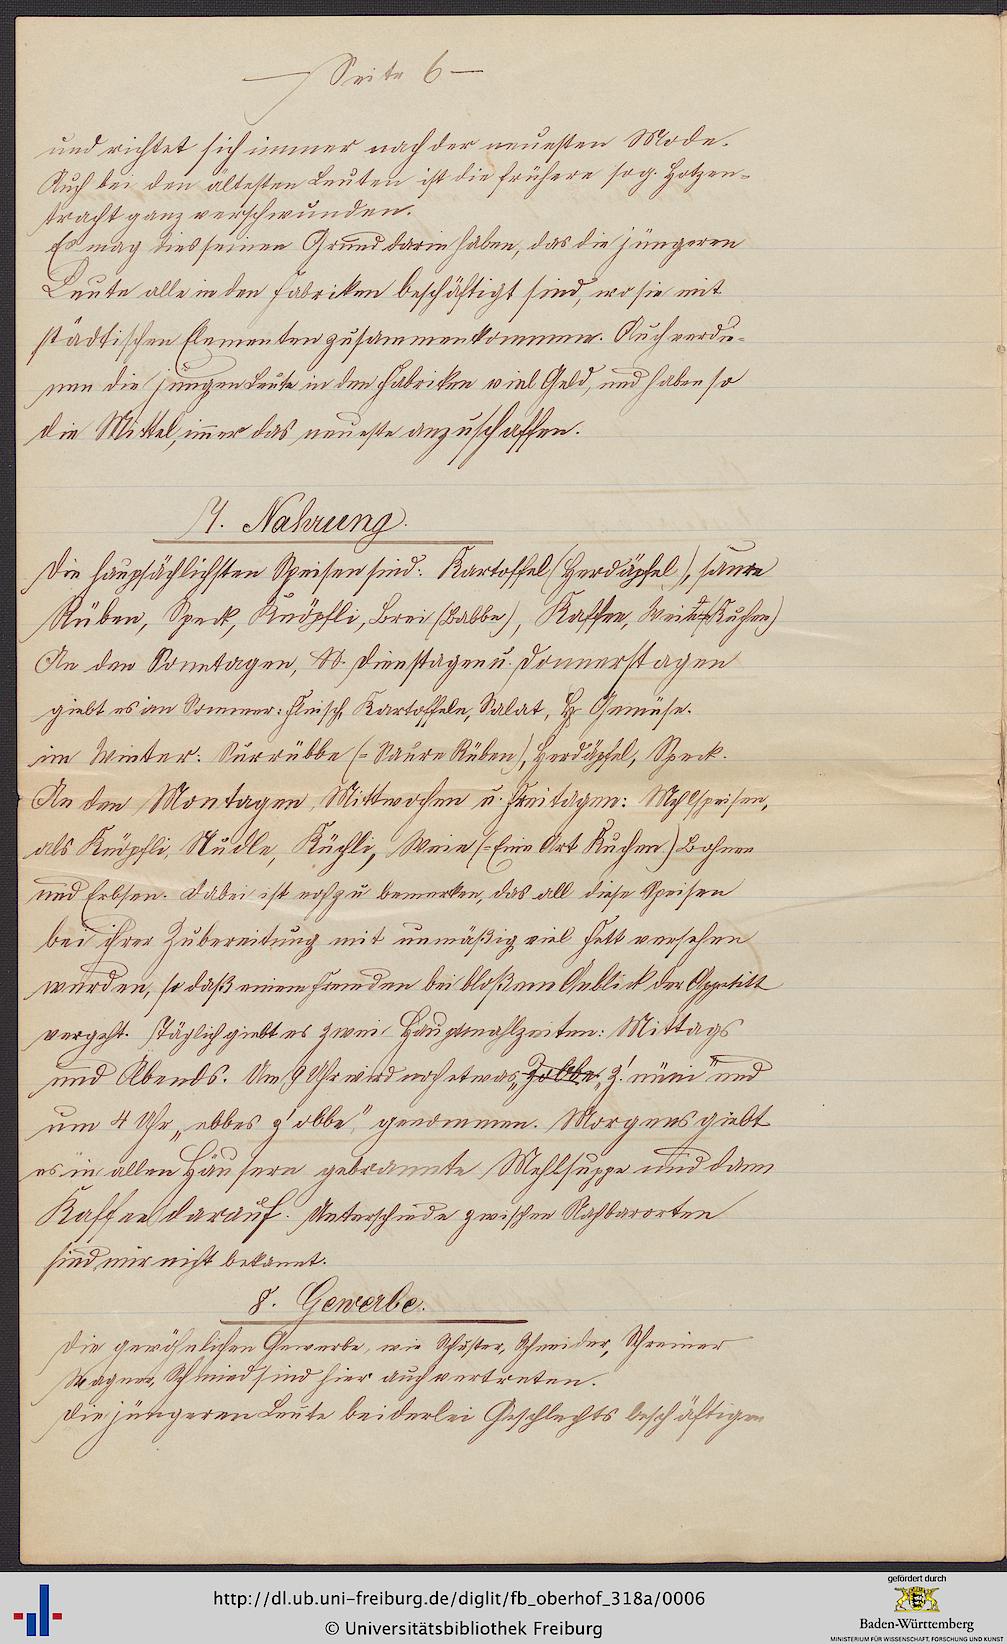 — Seite 6 —
und richtet sich immer nach der neuesten Mode.
Auch bei den ältesten Leuten ist die frühere sog. Hotzen-
tracht ganz verschwunden.
Es mag dies seinen Grund darin haben, das die jüngeren
Leute alle in den Fabriken beschäftigt sind, wo sie mit
städtischen Elementen zusammenkommen. Auch verdie-
nen die jungen Leute in den Fabriken viel Geld, und haben so
die Mittel, immer das neueste anzuschaffen.
7. Nahrung.
Die haupsächlichsten Speisen sind: Kartoffel (Herdäpfel), saure
Rüben, Speck, Knöpfli, Brei (Babbe), Kaffee, (Kuchen)
An den Sonntagen, Dienstagen u. Donnerstagen
giebt es im Sommer: Fleisch, Kartoffeln, Salat, Gemüse.
im Winter: Surrübbe (= Saure Rüben), Herdäpfel, Speck.
An den Montagen, Mittwochen u. Freitagen: Mehlspeisen,
als Knöpfli, Nudle, Küchli, Weie (= Eine Art Kuchen) Bohnen
und Erbsen. Dabei ist noch zu bemerken, das all diese Speisen
bei ihrer Zubereitung mit unmäßig viel Fett versehen
werden, so daß einem Fremden bei bloßem Anblick der Appetitt
vergeht. Täglich giebt es zwei Hauptmahlzeiten: Mittags
und Abends. Um 9 Uhr wird noch etwas „z'nüni" und
um 4 Uhr „ebbes z'obbe" genommen. Morgens giebt
es in allen Häusern gebrannte Mehlsuppe und dann
Kaffee darauf. Unterschiede zwischen Nachbarorten
sind mir nicht bekannt.
8. Gewerbe.
Die gewöhnlichen Gewerbe, wie Schuster, Schneider, Schreiner
Wagner, Schmied sind hier auch vertreten.
Die jüngeren Leute beiderlei Geschlechts beschäftigen
http://dl.ub.uni-freiburg.de/diglit/fb_oberhof_318a/0006
© Universitätsbibliothek Freiburg
gefördert durch
Baden-Württemberg
MINISTERIUM FÜR WISSENSCHAFT, FORSCHUNG UND KUNST